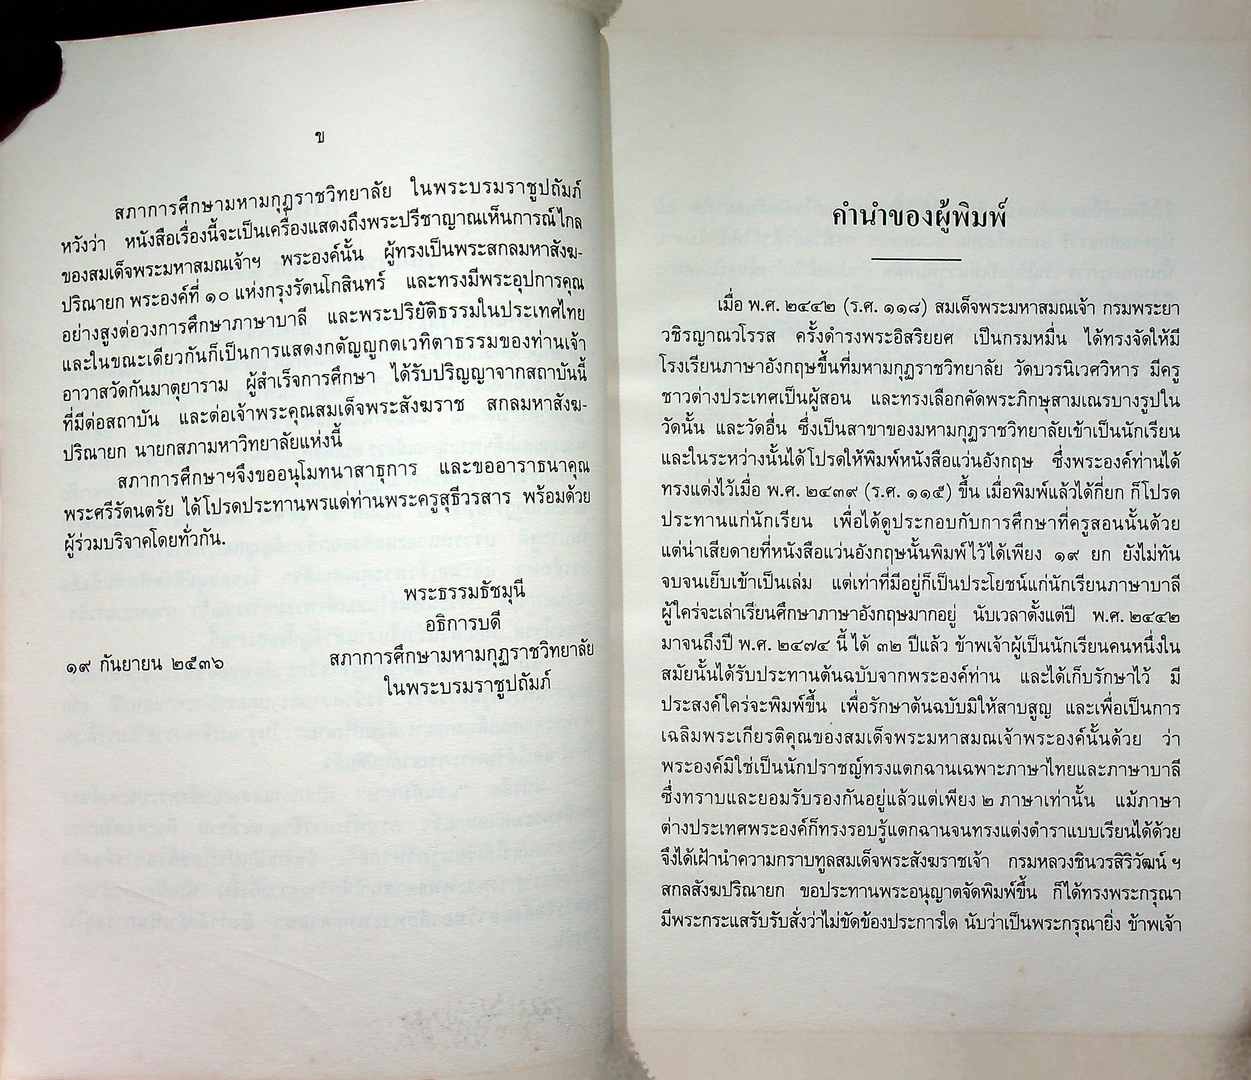 ข
สภาการศึกษามหามกุฏราชวิทยาลัย ในพระบรมราชูปถัมภ์
หวังว่า หนังสือเรื่องนี้จะเป็นเครื่องแสดงถึงพระปรีชาญาณเห็นการณ์ไกล
ของสมเด็จพระมหาสมณเจ้าฯ พระองค์นั้น ผู้ทรงเป็นพระสกลมหาสังฆ-
ปริณายก พระองค์ที่ ๑๐ แห่งกรุงรัตนโกสินทร์ และทรงมีพระอุปการคุณ
อย่างสูงต่อวงการศึกษาภาษาบาลี และพระปริยัติธรรมในประเทศไทย
และในขณะเดียวกันก็เป็นการแสดงกตัญญูกตเวทิตาธรรมของท่านเจ้า
อาวาสวัดกันมาตุยาราม ผู้สำเร็จการศึกษา ได้รับปริญญาจากสถาบันนี้
ที่มีต่อสถาบัน และต่อเจ้าพระคุณสมเด็จพระสังฆราช สกลมหาสังฆ-
ปริณายก นายกสภามหาวิทยาลัยแห่งนี้
สภาการศึกษาฯจึงขออนุโมทนาสาธุการ และขออาราธนาคุณ
พระศรีรัตนตรัย ได้โปรดประทานพรแด่ท่านพระครูสุธีวรสาร พร้อมด้วย
ผู้ร่วมบริจาคโดยทั่วกัน.
พระธรรมธัชมุนี
อธิการบดี
๑๙ กันยายน ๒๕๓๖ สภาการศึกษามหามกุฏราชวิทยาลัย
ในพระบรมราชูปถัมภ์
คำนำของผู้พิมพ์
เมื่อ พ.ศ. ๒๔๔๒ (ร.ศ. ๑๑๘) สมเด็จพระมหาสมณเจ้า กรมพระยา
วชิรญาณวโรรส ครั้งดำรงพระอิสริยยศ เป็นกรมหมื่น ได้ทรงจัดให้มี
โรงเรียนภาษาอังกฤษขึ้นที่มหามกุฏราชวิทยาลัย วัดบวรนิเวศวิหาร มีครู
ชาวต่างประเทศเป็นผู้สอน และทรงเลือกคัดพระภิกษุสามเณรบางรูปใน
วัดนั้น และวัดอื่น ซึ่งเป็นสาขาของมหามกุฏราชวิทยาลัยเข้าเป็นนักเรียน
และในระหว่างนั้นได้โปรดให้พิมพ์หนังสือแว่นอังกฤษ ซึ่งพระองค์ท่านได้
ทรงแต่งไว้เมื่อ พ.ศ. ๒๔๓๙ (ร.ศ. ๑๑๕) ขึ้น เมื่อพิมพ์แล้วได้กี่ยก ก็โปรด
ประทานแก่นักเรียน เพื่อได้ดูประกอบกับการศึกษาที่ครูสอนนั้นด้วย
แต่น่าเสียดายที่หนังสือแว่นอังกฤษนั้นพิมพ์ไว้ได้เพียง ๑๙ ยก ยังไม่ทัน
จบจนเย็บเข้าเป็นเล่ม แต่เท่าที่มีอยู่ก็เป็นประโยชน์แก่นักเรียนภาษาบาลี
ผู้ใคร่จะเล่าเรียนศึกษาภาษาอังกฤษมากอยู่ นับเวลาตั้งแต่ปี พ.ศ. ๒๔๔๒
มาจนถึงปี พ.ศ. ๒๔๗๔ นี้ ได้ ๓๒ ปีแล้ว ข้าพเจ้าผู้เป็นนักเรียนคนหนึ่งใน
สมัยนั้นได้รับประทานต้นฉบับจากพระองค์ท่าน และได้เก็บรักษาไว้ มี
ประสงค์ใคร่จะพิมพ์ขึ้น เพื่อรักษาต้นฉบับมิให้สาบสูญ และเพื่อเป็นการ
เฉลิมพระเกียรติคุณของสมเด็จพระมหาสมณเจ้าพระองค์นั้นด้วย ว่า
พระองค์มิใช่เป็นนักปราชญ์ทรงแตกฉานเฉพาะภาษาไทยและภาษาบาลี
ซึ่งทราบและยอมรับรองกันอยู่แล้วแต่เพียง ๒ ภาษาเท่านั้น แม้ภาษา
ต่างประเทศพระองค์ก็ทรงรอบรู้แตกฉานจนทรงแต่งตำราแบบเรียนได้ด้วย
จึงได้เฝ้านำความกราบทูลสมเด็จพระสังฆราชเจ้า กรมหลวงชินวรสิริวัฒน์ ฯ
สกลสังฆปริณายก ขอประทานพระอนุญาตจัดพิมพ์ขึ้น ก็ได้ทรงพระกรุณา
มีพระกระแสรับรับสั่งว่าไม่ขัดข้องประการใด นับว่าเป็นพระกรุณายิ่ง ข้าพเจ้า